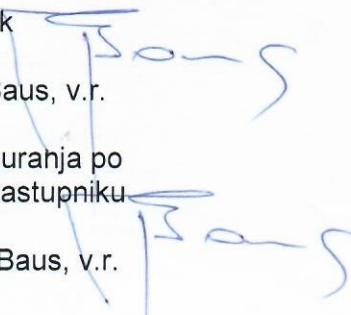 k
Baus, v.r.
uranja po
astupniku
Baus, v.r.